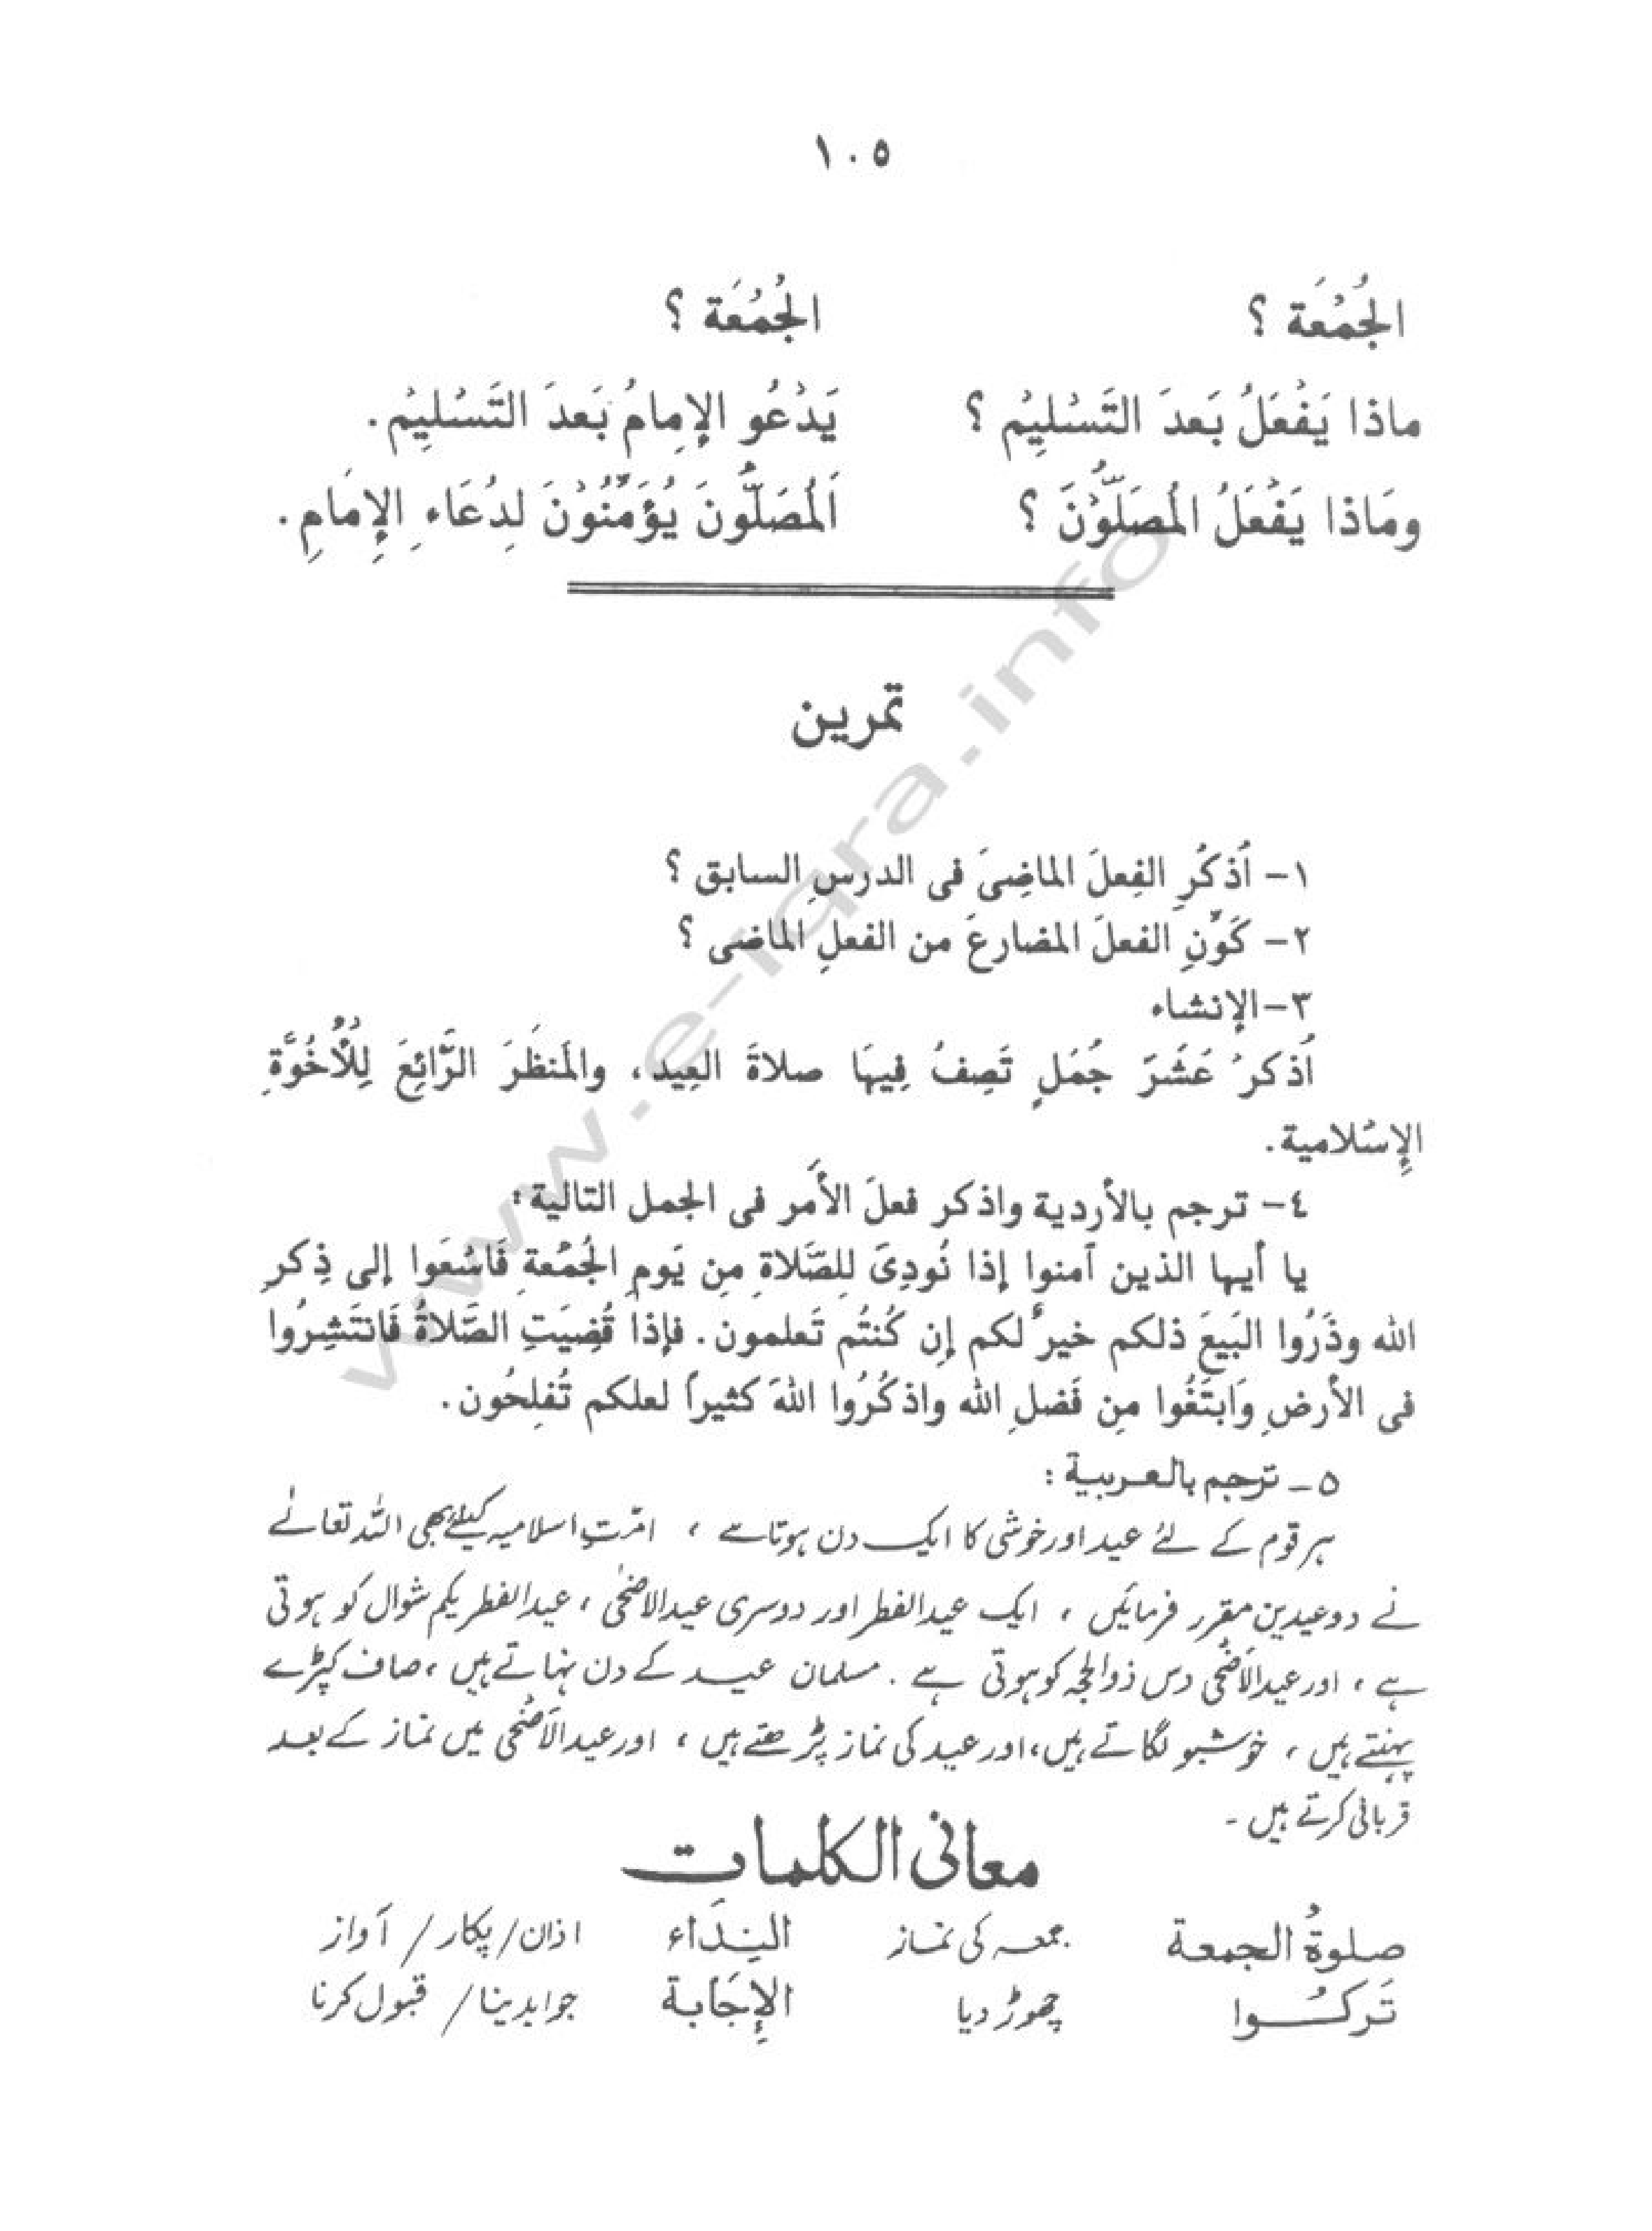 ١٠٥
الجُمُعَة ؟ الجُمُعَة ؟
ماذا يَفْعَلُ بَعدَ التَسْلِيْم ؟ يَدْعُو الإِمامُ بَعدَ التَسْلِيِمْ.
ومَاذا يَفْعَلُ المُصَلّوْنَ ؟ اَلْمُصَلُّونَ يُؤَمِّنُوْنَ لِدُعَاءِ الإِمَامِ.
تمرين
١- اُذكُرِ الفِعلَ الماضِىَ فى الدرسِ السابق ؟
٢- كَوِّنِ الفعلَ المضارعَ من الفعلِ الماضى ؟
٣-الإنشاء
اُذكرْ عَشَرَ جُمَلٍ تَصِفُ فِيهَا صلاةَ العِيد، والمَنظَرَ الرَّائِعَ لِلْأُخُوَّةِ
الإِسْلامية.
٤- ترجم بالأردية واذكر فعلَ الأَمر فى الجمل التالية:
يا أيها الذين آمنوا إذا نُودِىَ لِلصَّلاةِ مِن يَومِ الجُمُعةِ فَاسْعَوا إلى ذِكرِ
الله وذَرُوا البَيعَ ذلكم خيرٌ لكم إن كُنتُم تَعلمون. فإذا قُضِيَتِ الصَّلاةُ فَانتَشِرُوا
فى الأرضِ وَابتَغُوا مِن فَضلِ الله واذكُرُوا اللهَ كثيراً لعلكم تُفلِحُون.
٥ـ ترجم بالعربية :
ہر قوم کے لئے عید اور خوشی کا ایک دن ہوتا ہے ، امّتِ اسلامیہ کیلئے بھی اللہ تعالٰے
نے دو عیدین مقرر فرمائیں ، ایک عیدالفطر اور دوسری عیدالاضحٰی ، عیدالفطر یکم شوال کو ہوتی
ہے ، اور عیدالاَضحٰی دس ذوالحجہ کو ہوتی ہے . مسلمان عید کے دن نہاتے ہیں ، صاف کپڑے
پہنتے ہیں ، خوشبو لگاتے ہیں، اور عید کی نماز پڑھتے ہیں ، اور عیدالاَضحٰی میں نماز کے بعد
قربانی کرتے ہیں ۔
معانى الكلمات
صلوةُ الجمعة جمعہ کی نماز النِدَاء اذان/پکار/ آواز
تَركُوا چھوڑ دیا الإِجَابة جواب دینا/ قبول کرنا
www.e-iqra.info